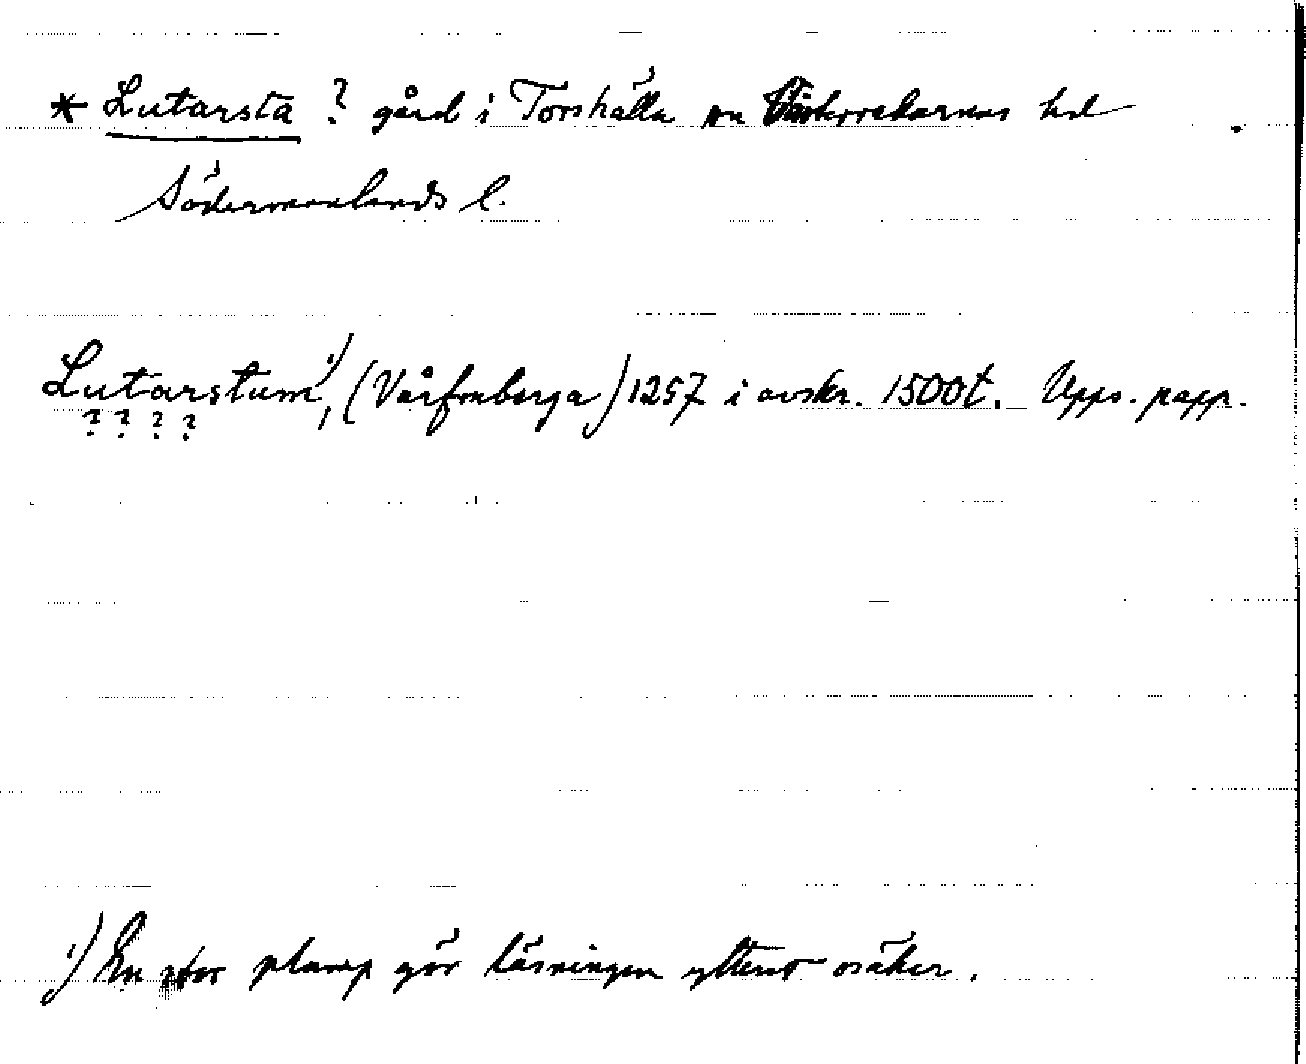 * Lutarsta ? gård i Torshälla sn Västerrekarnes hd
Södermanlands l.
Lutarstum, 1) (Vårfruberga) 1257 i avskr. 1500t. Upps. papp.
? ? ? ?
1) En stor plump gör läsningen ytterst osäker.